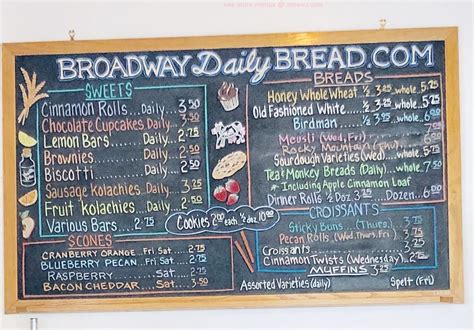 BROADWAY Daily BREAD.COM
SWEETS
Cinnamon Rolls...Daily....3.50
Chocolate Cupcakes Daily..3.50
Lemon Bars.....Daily.....2.75
Brownies.....Daily.....2.75
Biscotti.....Daily.....2.50
Sausage kolachies..Daily..3.50
Fruit kolachies....Daily..2.75
Various Bars.............2.75
Cookies 2.00 each ½ dz 10.00
SCONES
CRANBERRY ORANGE..Fri Sat....2.75
BLUEBERRY PECAN..Fri Sat....2.75
RASPBERRY.......Fri Sat....2.75
BACON CHEDDAR..Fri Sat....
BREADS
Honey Whole Wheat ½ 3.25 whole 5.75
Old Fashioned White....½ 3.25..whole
Birdman........½ 3.25 whole
Muesli (Wed, Fri)
Rocky Mountain (Thu)
Sourdough Varieties (Wed)....whole
Tea & Monkey Breads (Daily)
* Including Apple Cinnamon Loaf
Dinner Rolls ½ Doz 3.25 Dozen
CROISSANTS
Sticky Buns...(Thurs.)
Pecan Rolls (Wed.Thurs.Fri)
Croissants
Cinnamon Twists (Wednesday)
MUFFINS 3.25
Assorted Varieties (daily) Spelt (Fri)